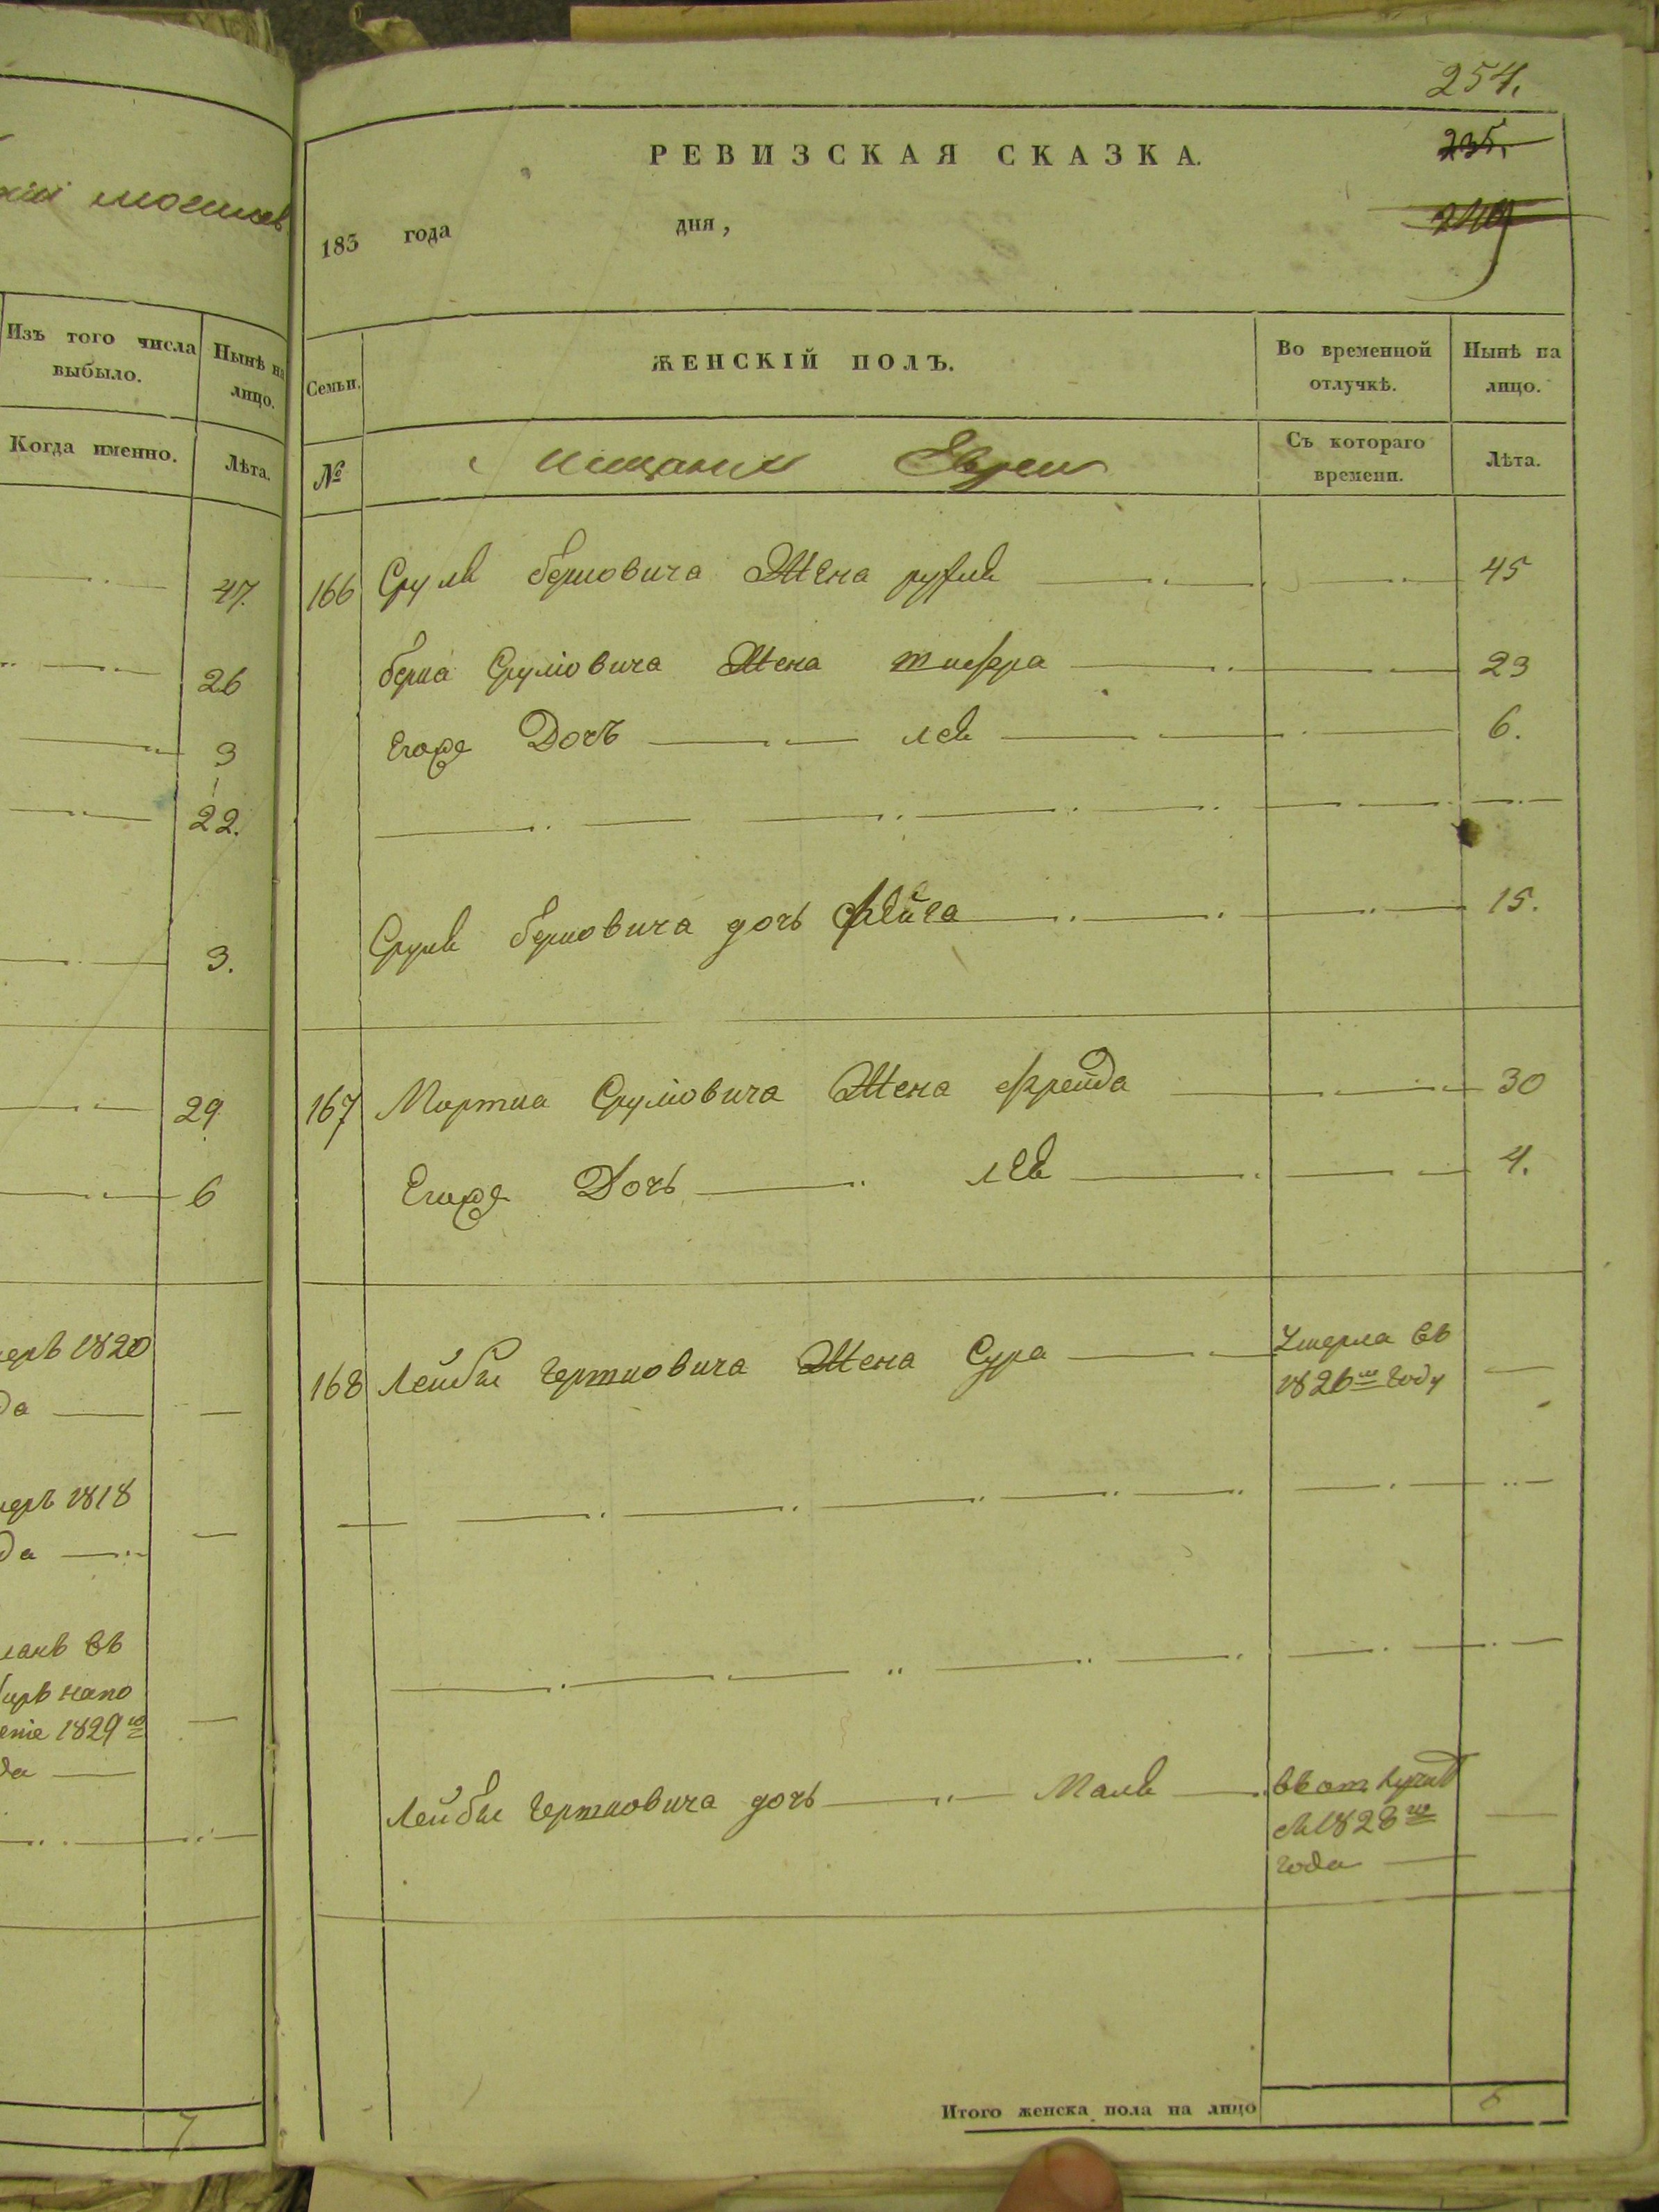 254.
235.
РЕВИЗСКАЯ СКАЗКА.
183 года дня,
Изъ того числа выбыло.
Нынѣ на лицо.
Когда именно.
Лѣта.
47.
26
3
22.
3.
29
6
1820
да
1818
да
въ
1829го
да
7
Семьи.
ЖЕНСКІЙ ПОЛЪ.
Во временной отлучкѣ.
Нынѣ на лицо.
№
Мещанъ Евреи
Съ котораго времени.
Лѣта.
166 Сруля Берковича Жена 45
Берка Срулiовича Жена 23
Егоже Дочь Лея 6.
Сруля Берковича дочь Фейга 15.
167 Мортка Срулiовича Жена Фрейда 30
Егоже Дочь Лея 4.
168 Лейбы Гершковича Жена Сура Умерла въ
1826м году
Лейбы Гершковича дочь Маля
1828го
года
Итого женска пола на лицо 6